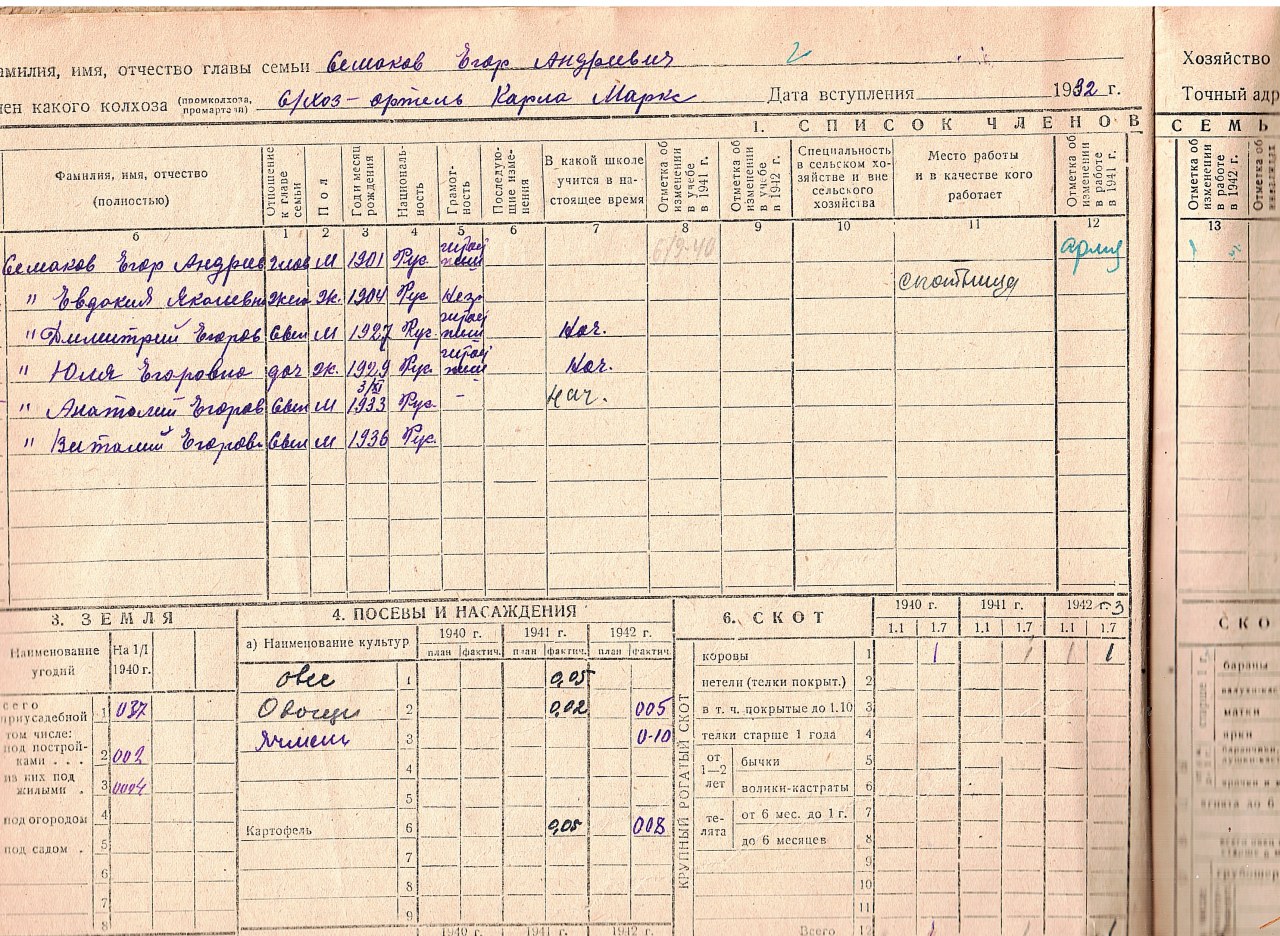 амилия, имя, отчество главы семьи Семаков Егор Андриевич 2
лен какого колхоза (промколхоза, промартели) С/хоз-ортель Карла Маркс Дата вступления 1932 г.
Хозяйство
Точный адр
1. СПИСОК ЧЛЕНОВ СЕМЬ
Фамилия, имя, отчество (полностью)
Отношение к главе семьи
Пол
Год и месяц рождения
Националь-ность
Грамот-ность
Последую-щие изме-нения
В какой школе учится в на-стоящее время
Отметка об изменении в учебе в 1941 г.
Отметка об изменении в учебе в 1942 г.
Специальность в сельском хо-зяйстве и вне сельского хозяйства
Место работы и в качестве кого работает
Отметка об изменении в работе в 1941 г.
Отметка об изменении в работе в 1942 г.
Отметка об
б 1 2 3 4 5 6 7 8 9 10 11 12 13
Семаков Егор Андрие глов М 1901 Рус 6/9-40 армия
" Евдокия Яковлевн жен ж. 1904 Рус Нез скотница
" Димитрий Егоров Сын М 1927 Рус. Нач.
" Юля Егоровно доч ж. 1929 Рус. Нач.
3/XI
" Анатолий Егоров Сын М 1933 Рус. - нач.
" Виталий Егоров Сын М 1936 Рус.
3. ЗЕМЛЯ
Наименование угодий
На 1/I 1940 г.
сего приусадебной 1 037
том числе:
под построй-ками . . . 2 002
из них под жилыми . 3 0004
под огородом 4
под садом . 5
6
7
8
4. ПОСЕВЫ И НАСАЖДЕНИЯ
а) Наименование культур 1940 г. 1941 г. 1942 г.
план фактич. план фактич. план фактич.
овес 1 0,05
Овощи 2 0,02 005
Ячмень 3 0-10
4
5
Картофель 6 0,05 008
7
8
9
1940 г. 1941 г. 1942 г.
6. СКОТ
1940 г. 1941 г. 1942 г. 3
1.1 1.7 1.1 1.7 1.1 1.7
КРУПНЫЙ РОГАТЫЙ СКОТ
коровы 1 1 1 1 1
нетели (телки покрыт.) 2
в т. ч. покрытые до 1.10 3
телки старше 1 года 4
от 1—2 лет
бычки 5
волики-кастраты 6
те-лята
от 6 мес. до 1 г. 7
до 6 месяцев 8
9
10
11
Всего 12 1 1 1
СКО
бараны
матки
ярки